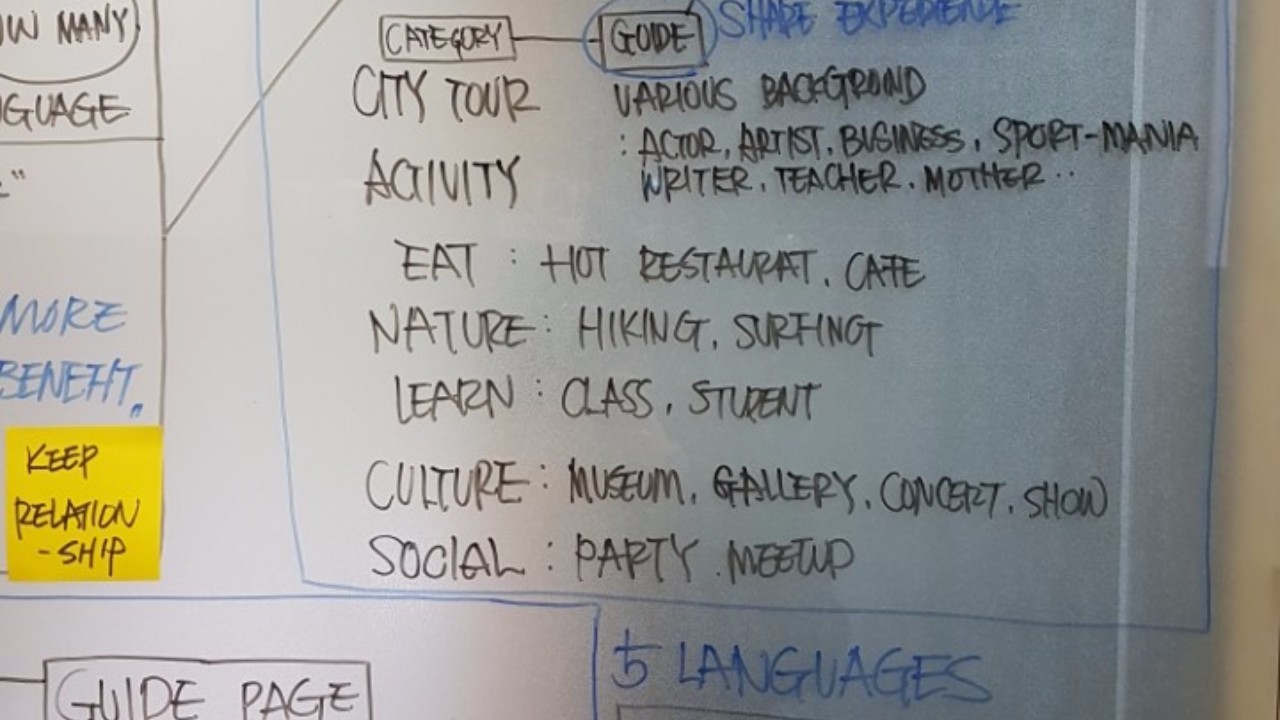 MANY
LANGUAGE
MORE
BENEFIT.
KEEP
RELATION
-SHIP
CATEGORY
GUIDE
SHARE EXPERIENCE
CITY TOUR
VARIOUS BACKGROUND
: ACTOR, ARTIST, BUSINESS, SPORT-MANIA
ACTIVITY
WRITER, TEACHER, MOTHER..
EAT : HOT RESTAURAT, CAFE
NATURE : HIKING, SURFING
LEARN : CLASS, STUDENT
CULTURE : MUSEUM, GALLERY, CONCERT, SHOW
SOCIAL : PARTY. MEETUP
GUIDE PAGE
5 LANGUAGES